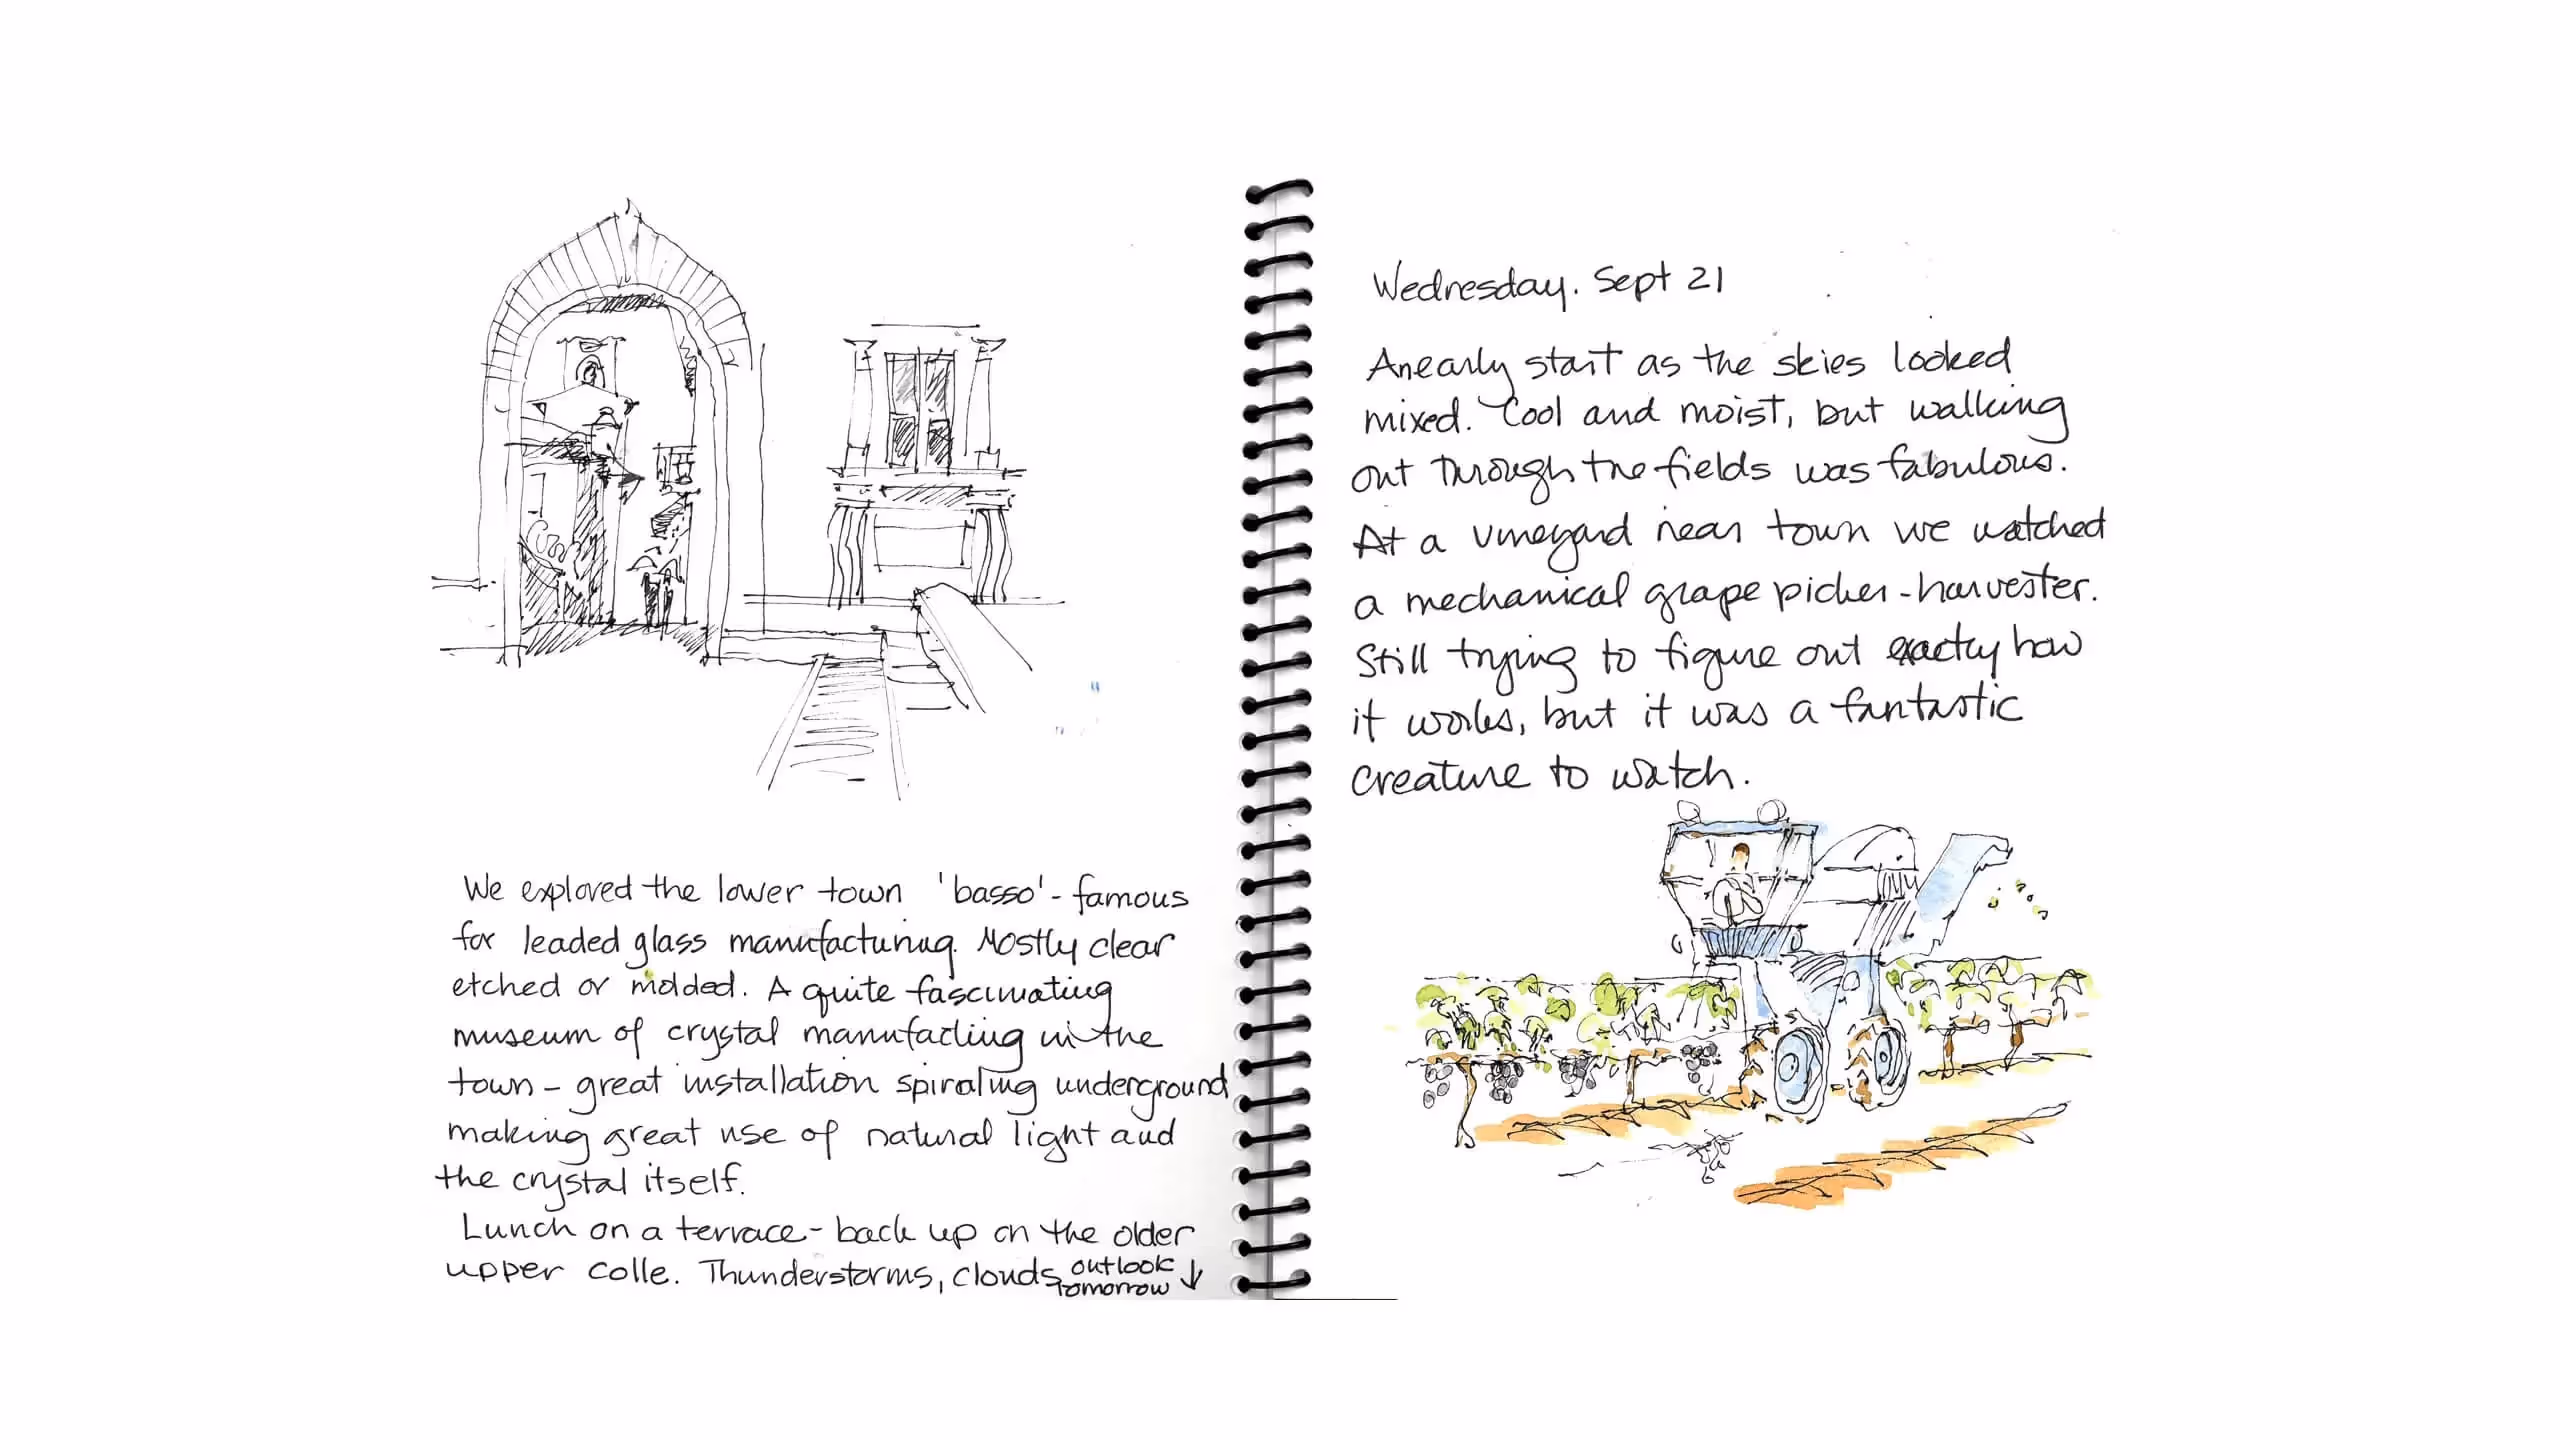 We explored the lower town 'basso' - famous
for leaded glass manufacturing. Mostly clear
etched or molded. A quite fascinating
museum of crystal manufacting in the
town - great installation spiraling underground
making great use of natural light and
the crystal itself.
Lunch on a terrace - back up on the older
upper colle. Thunderstorms, clouds outlook
tomorrow ↓
Wednesday. Sept 21
An early start as the skies looked
mixed. Cool and moist, but walking
out through the fields was fabulous.
At a vineyard near town we watched
a mechanical grape picker - harvester.
Still trying to figure out exactly how
it works, but it was a fantastic
creature to watch.